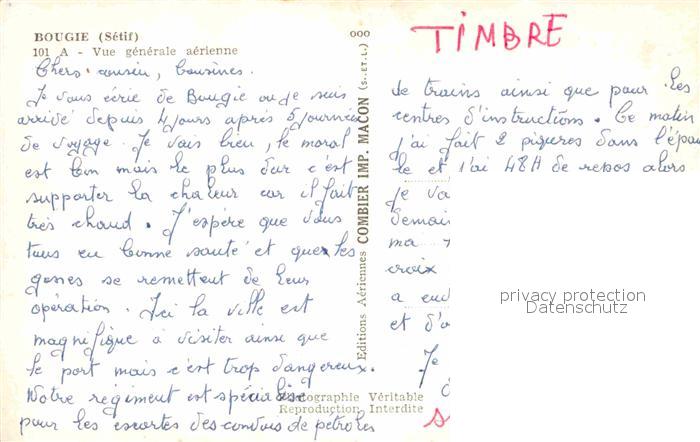 BOUGIE (Sétif)
101 A - Vue générale aérienne
Chers cousin, Cousines.
Je vous écrie de Bougie ou je suis
arrivé depuis 4 jours après 5 journées
de voyage. Je vais bien, le moral
est bon mais le plus dur c'est
supporter la chaleur car il fait
très chaud. J'espère que vous
tous en bonne santé et que les
gones se remettent de leur
opération. Ici la ville est
magnifique à visiter ainsi que
le port mais c'est trop dangereux.
Notre régiment est spécialisé
pour les escortes des convois de pétroles
ooo
Editions Aériennes COMBIER IMP. MACON (S.-ET-L.)
Photographie Véritable
Reproduction Interdite
TIMBRE
de trains ainsi que pour les
centres d'instructions. Ce matin
j'ai fait 2 piqures dans l'épau
le et j'ai 48H de repos alors
je va
demai
ma
croix
a eu
et d'a
Je
privacy protection
Datenschutz